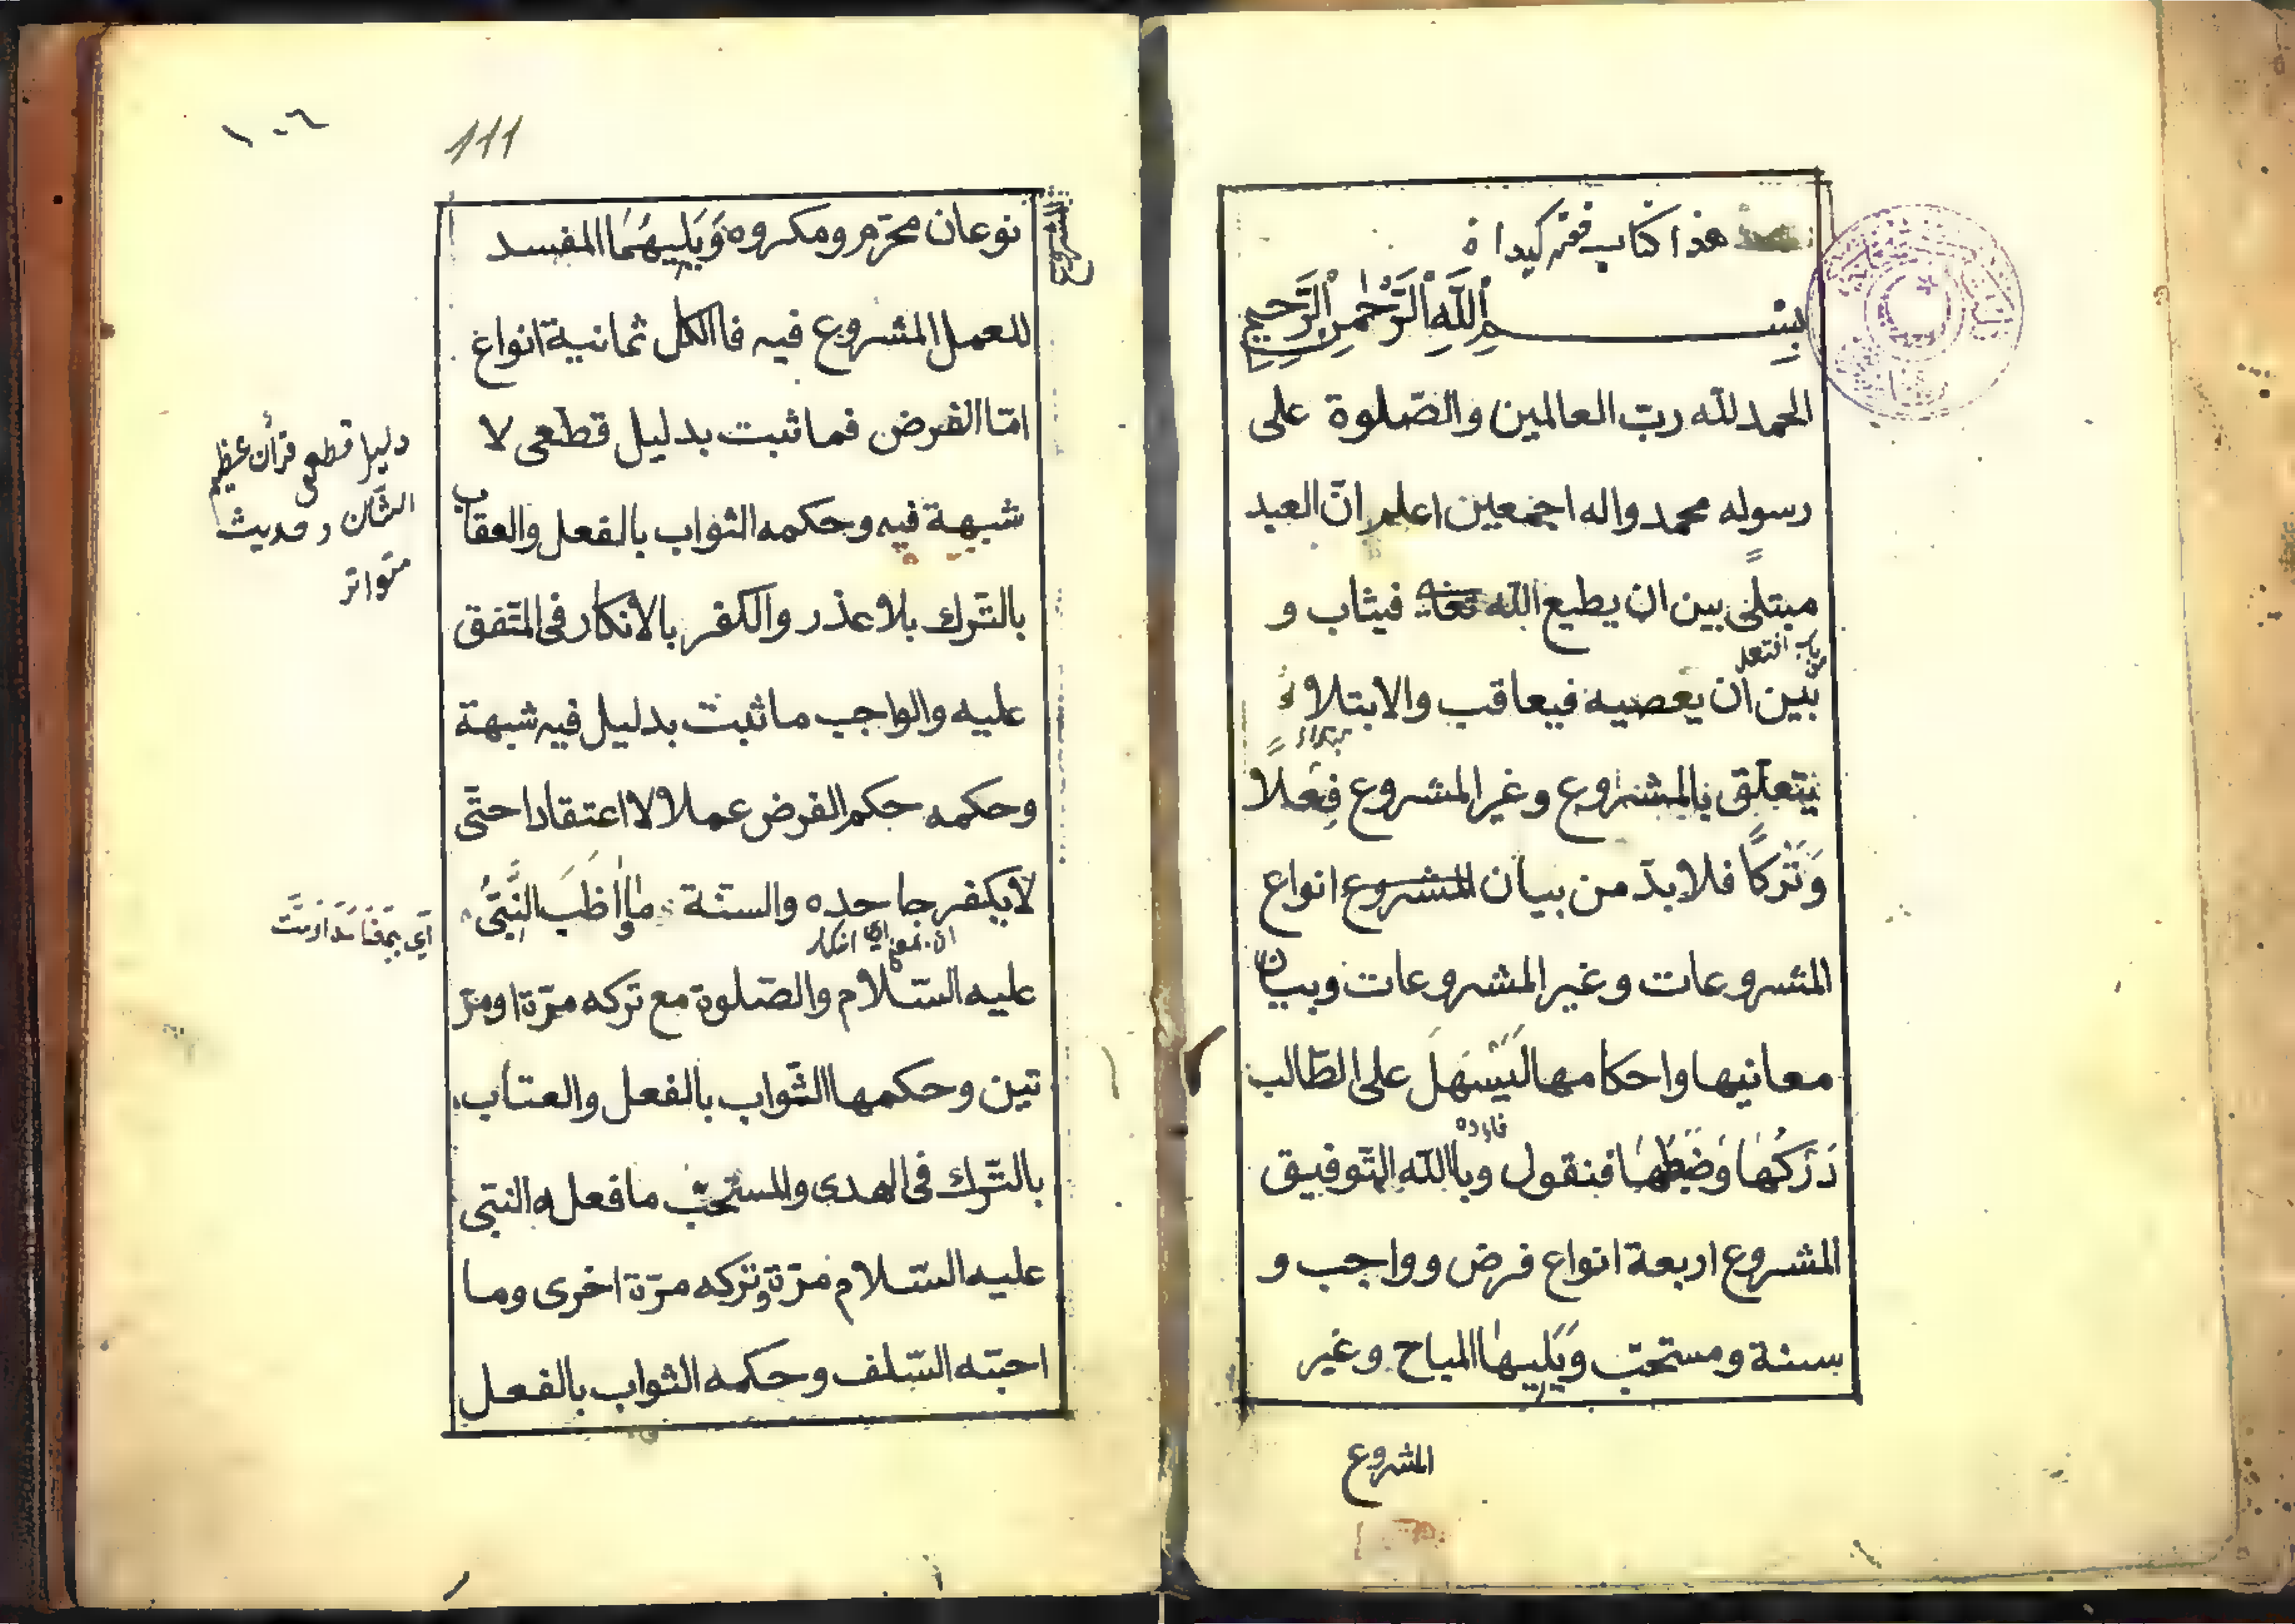 هذا كتاب فقه كيدا
بسم الله الرحمن الرحيم
الحمد لله رب العالمين والصّلوة على
رسوله محمد واله اجمعين اعلم انّ العبد
مبتلى بين ان يطيع الله تعا فيثاب و
من باب افتعل
بين ان يعصيه فيعاقب والابتلاء
يتعلّق بالمشروع وغير المشروع فِعلًا
وَتَرْكًا فلا بدّ من بيان المشروع انواع
المشروعات وغير المشروعات وبيان
معانيها واحكامها ليَسْهَلَ على الطّالب
دَرْكُهَا وَضَبْطُهَا فنقول وبالله التّوفيق
المشروع اربعة انواع فرض وواجب و
سنة ومستحبّ وَيَلِيهَا المباح وغير
المشروع
١٠٦
111
المشروع
نوعان محرّم ومكروه وَيَلِيهُمَا المفسد
للعمل المشروع فيه فاالكل ثمانية انواع
امّا الفرض فما ثبت بدليل قطعى لا
شبهة فيه وحكمه الثواب بالفعل والعقاب
بالتّرك بلا عذر والكفر بالانكار فى المتّفق
عليه والواجب ما ثبت بدليل فيه شبهة
وحكمه حكم الفرض عملا لا اعتقادا حتّى
لا يكفر جاحده والسنّة ما وٰاظَبَ النَّبِىُّ
اى انكار
عليه السّلام والصّلوة مع تركه مرّة او مرّ
تين وحكمها الثّواب بالفعل والعتاب
بالتّرك فى الهدى والمستحبّ ما فعله النبّى
عليه السّلام مرّة وتركه مرّة اخرى وما
احبّه السّلف وحكمه الثواب بالفعل
دليل قطعى قرأن عظيم
الشّان وحديث
متواتر